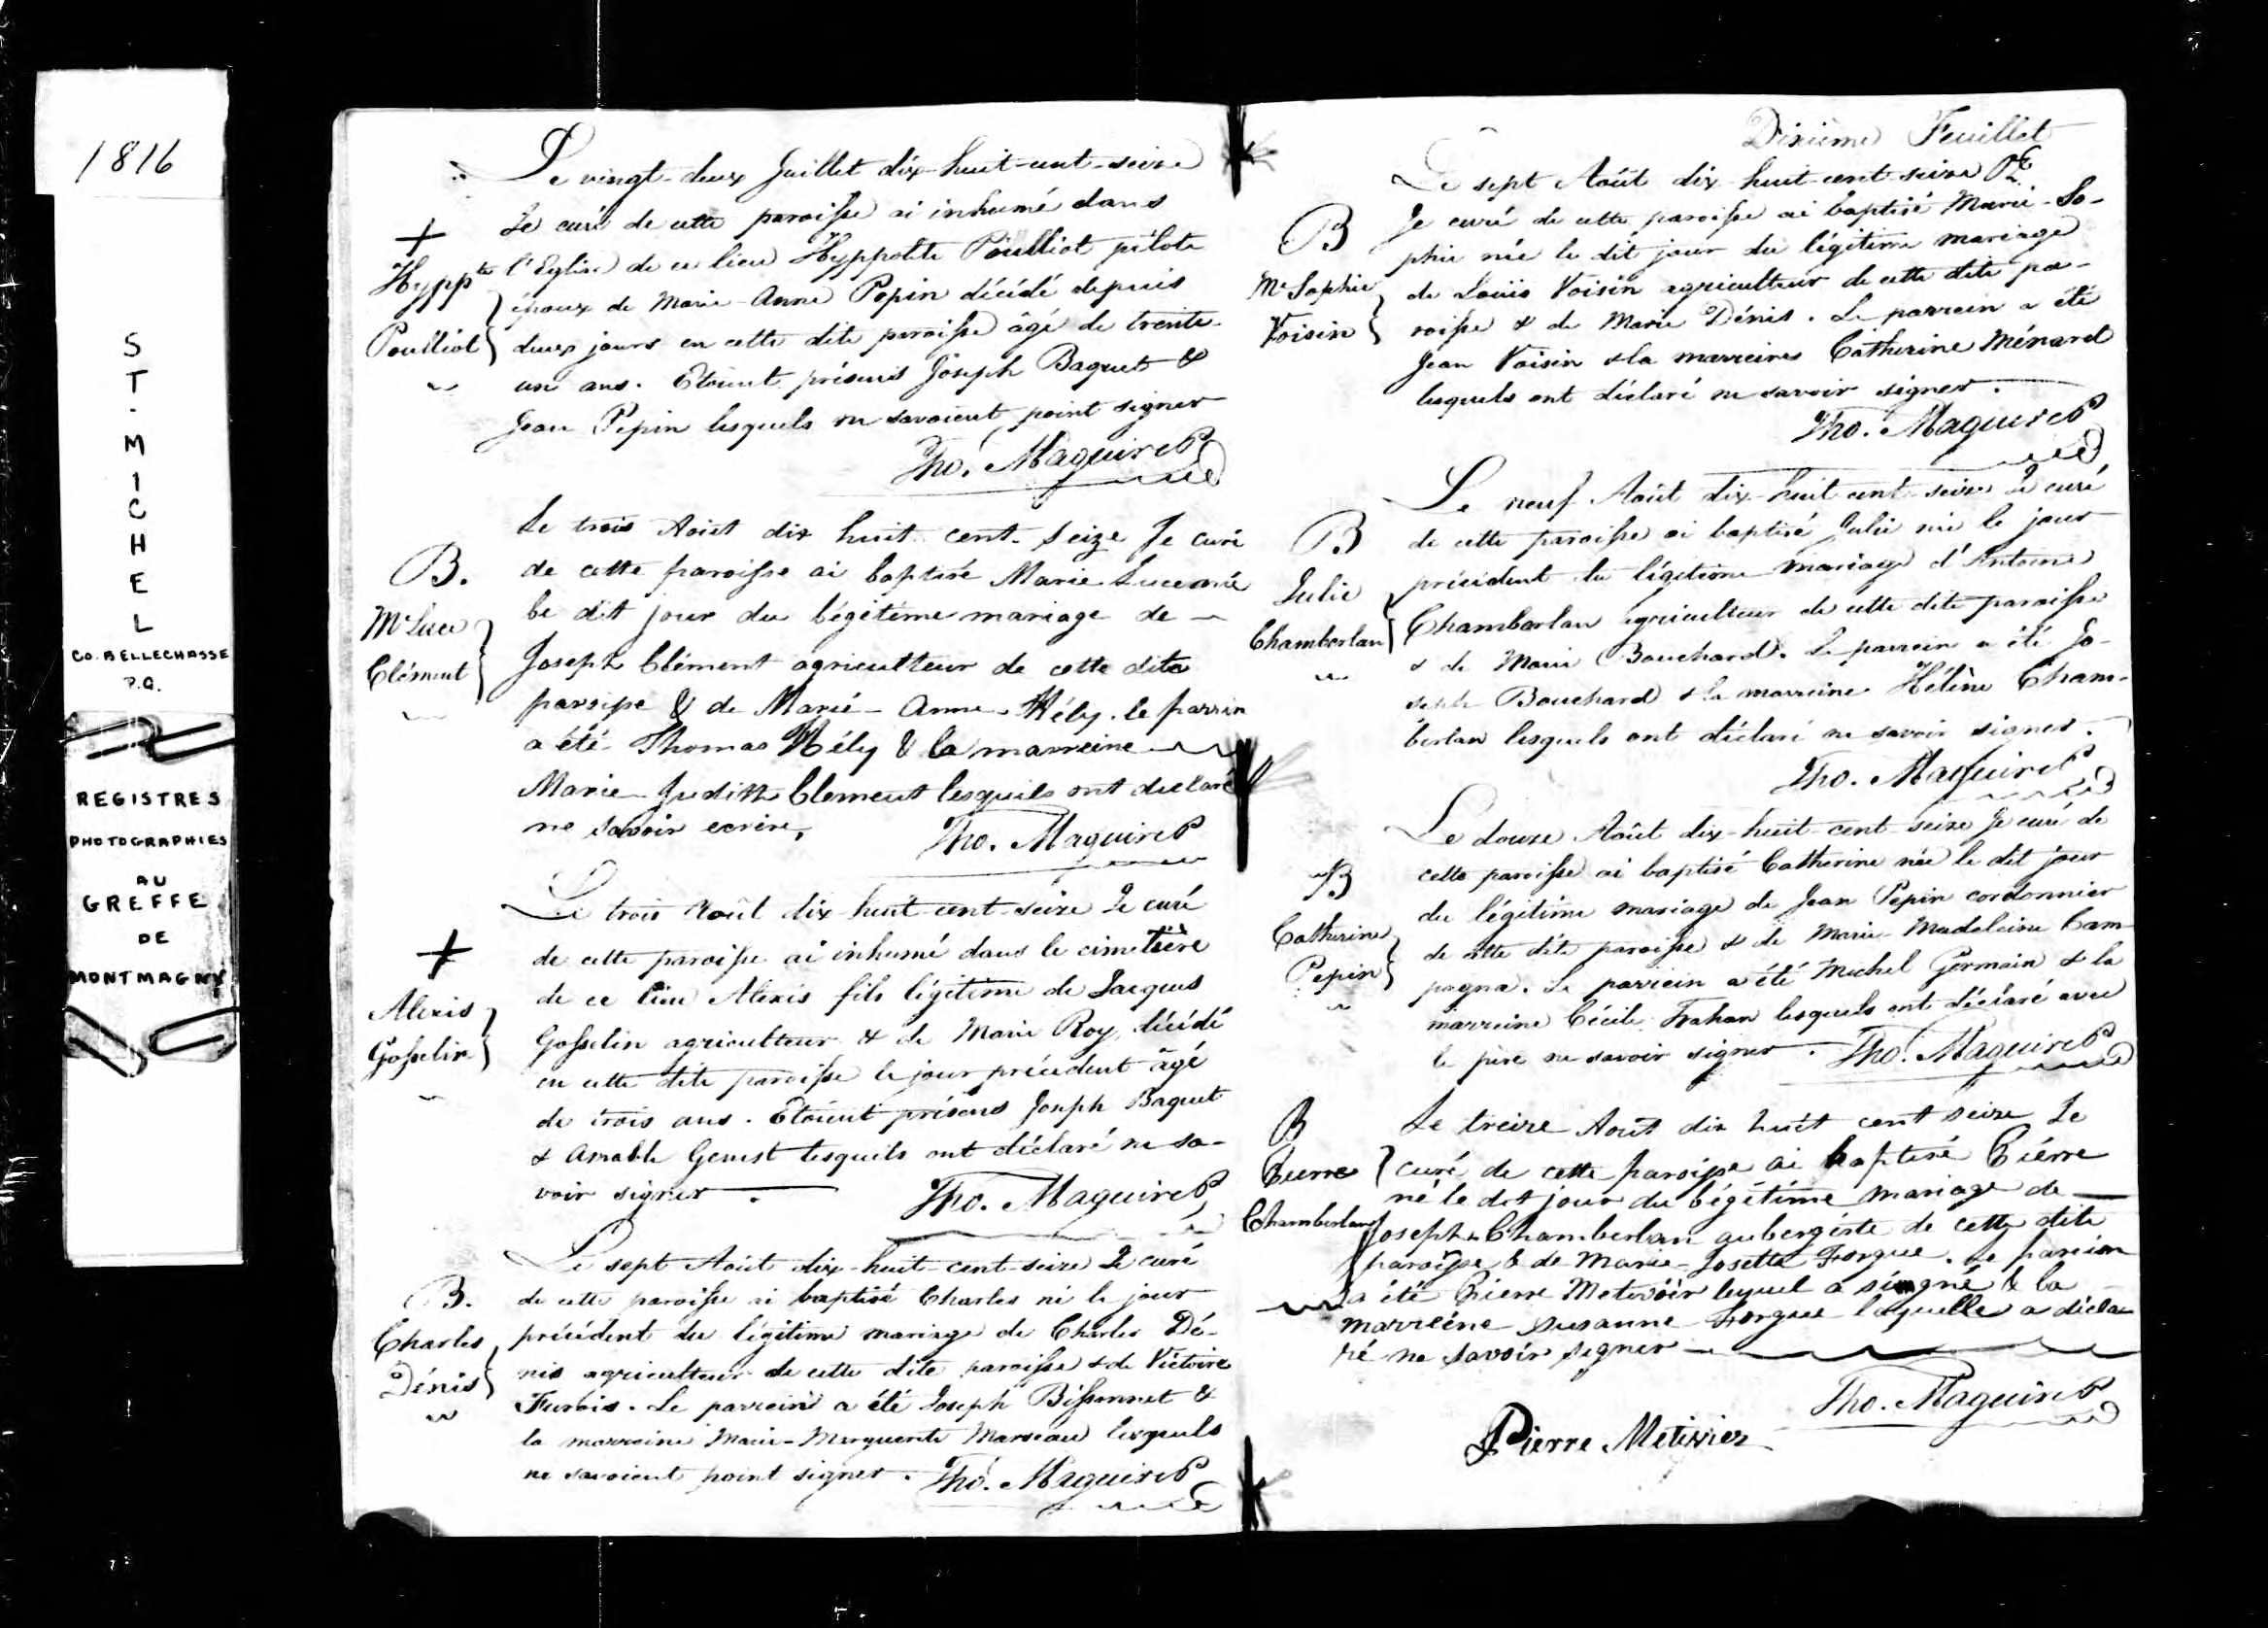 1816
S
T
.
M
I
C
H
E
L
CO. BELLECHASSE
P.Q.
REGISTRES
PHOTOGRAPHIES
AU
GREFFE
DE
MONTMAGNY
Le vingt-deux Juillet dix-huit-cent-seize
Je curé de cette paroisse ai inhumé dans
l'Eglise de ce lieu Hyppolite Poulliot pilote
époux de Marie-Anne Pepin décédé depuis
deux jours en cette dite paroisse âgé de trente-
un ans. Etoient présens Joseph Baquet &
Jean Pepin lesquels ne savoient point signer
Tho. Maguire P
+
Hyppte
Poulliot
Le trois Aout dix huit cent-seize Je curé
de cette paroisse ai baptisé Marie Luce née
le dit jour du légitime mariage de
Joseph Clément agriculteur de cette dite
paroisse & de Marie-Anne Hély. le parrin
a été Thomas Hély & la marreine
Marie-Judith Clement lesquels ont declaré
ne savoir ecrire,
Tho. Maguire P
B.
Me Luce
Clément
Le trois Août dix-huit-cent-seize Je curé
de cette paroisse ai inhumé dans le cimetière
de ce lieu Alexis fils légitime de Jacques
Gosselin agriculteur & de Marie Roy, décédé
en cette dite paroisse le jour précédent âgé
de trois ans. Etoient présens Joseph Baquet
& Amable Genest lesquels ont déclaré ne sa-
voir signer.
Tho. Maguire P
+
Alexis
Gosselin
Le sept Août dix-huit-cent-seize Je curé
de cette paroisse ai baptisé Charles né le jour
précédent du légitime mariage de Charles Dé-
nis agriculteur de cette dite paroisse & de Victoire
Furois. Le parrein a été Joseph Bissonnet &
la marreine Marie-Marguerite Marseau lesquels
ne savoient point signer. Tho. Maguire P
B.
Charles
Dénis
Dixième Feuillet
Le sept Août dix-huit-cent-seize
Je curé de cette paroisse ai baptisé Marie-So-
phie née le dit jour du légitime mariage
de Louis Voisin agriculteur de cette dite pa-
roisse & de Marie Dénis. Le parrein a été
Jean Voisin & la marreine Catherine Ménard
lesquels ont déclaré ne savoir signer.
Tho. Maguire P
B
Me Sophie
Voisin
Le neuf Août dix-huit-cent-seize Je curé
de cette paroisse ai baptisé Julie née le jour
précédent du légitime mariage d'Antoine
Chamberlan agriculteur de cette dite paroisse
& de Marie Bouchard. Le parrein a été Jo-
seph Bouchard & la marreine Hélène Cham-
berlan lesquels ont déclaré ne savoir signer.
Tho. Maguire P
B
Julie
Chamberlan
Le douze Août dix-huit-cent-seize Je curé de
cette paroisse ai baptisé Catherine née le dit jour
du légitime mariage de Jean Pepin cordonnier
de cette dite paroisse & de Marie-Madeleine Cam-
pagna. Le parrein a été Michel Germain & la
marreine Cécile Trahan lesquels ont déclaré avec
le père ne savoir signer. Tho. Maguire P
B
Catherine
Pepin
Le treize Aout dix huit cent seize Je
curé de cette paroisse ai baptisé Pierre
né le dit jour du légitime mariage de
Joseph Chamberlan aubergiste de cette dite
paroisse & de Marie-Josette Forgue. Le parein
a été Pierre lequel a signé & la
marreine Susanne Forgue laquelle a decla
ré ne savoir signer
Tho. Maguire P
Pierre Metivier
B
Pierre
Chamberlan